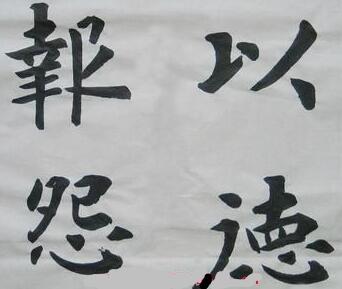 以德
報怨